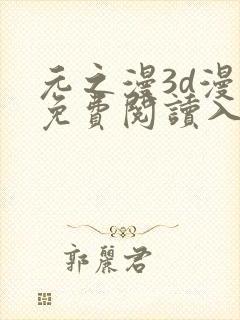 元之漫3d漫
免費閱讀入
郭麗君